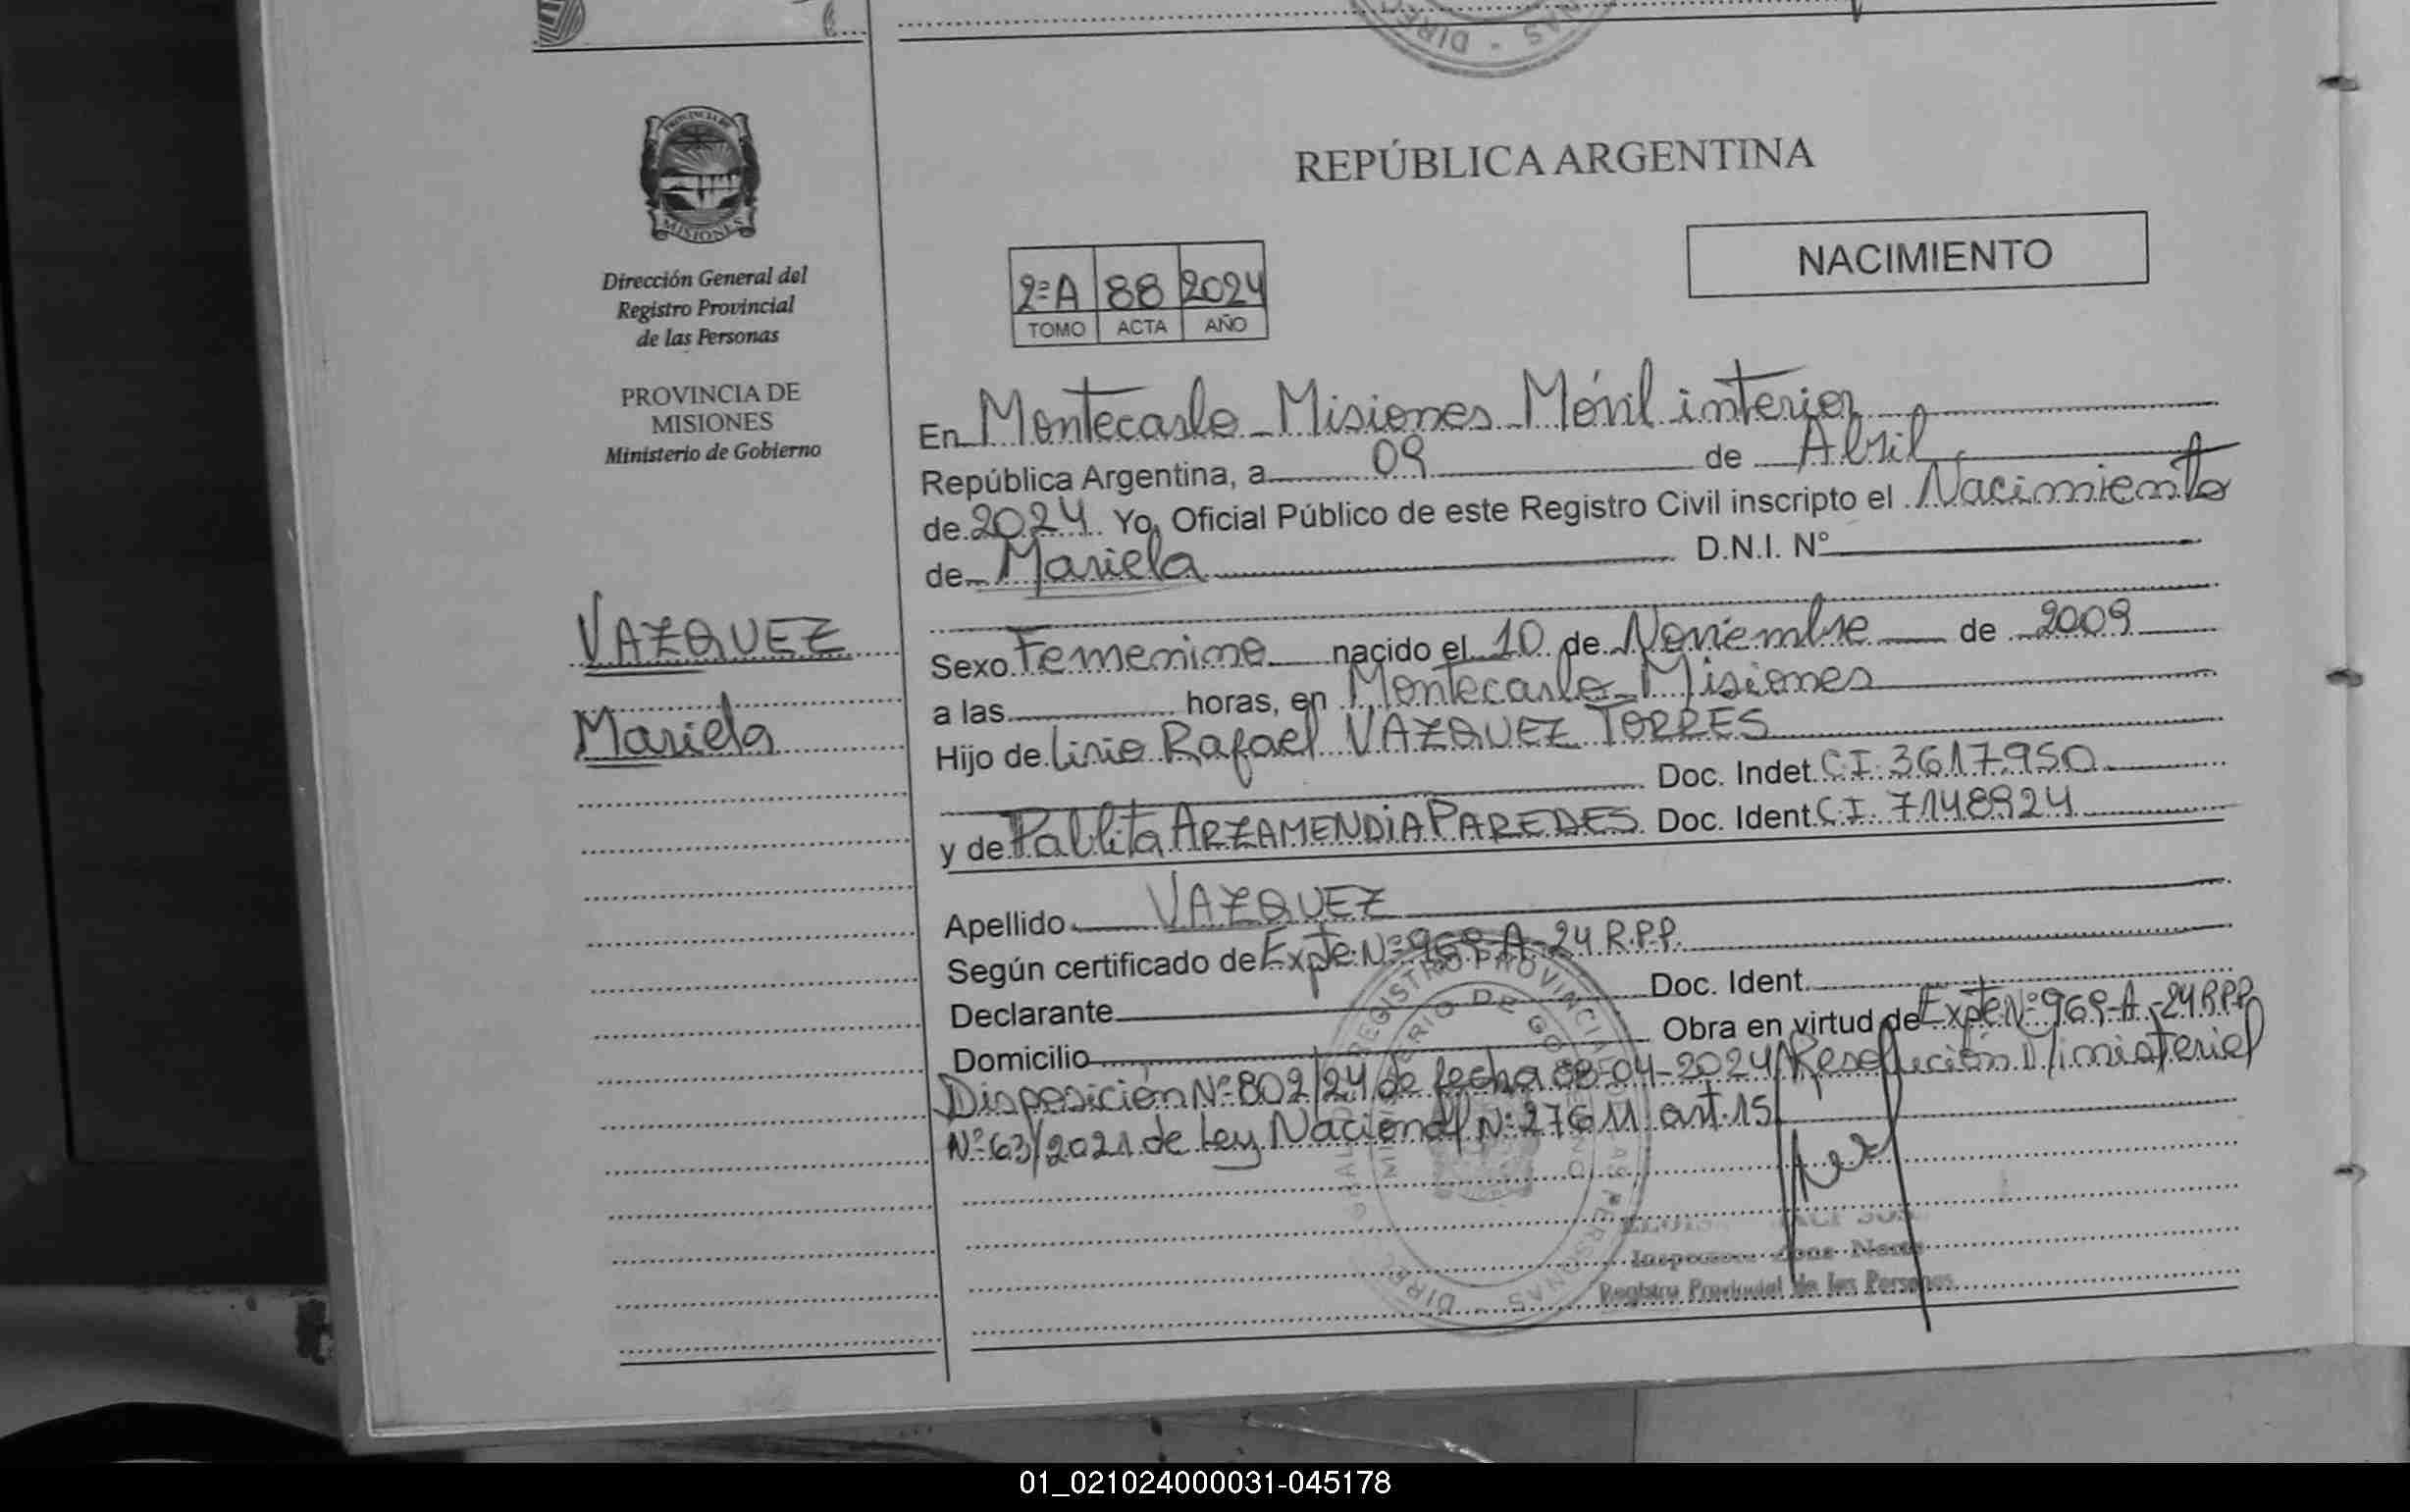 PROVINCIA DE
MISIONES
Dirección General del
Registro Provincial
de las Personas
PROVINCIA DE
MISIONES
Ministerio de Gobierno
VAZQUEZ
Mariela
REPÚBLICA ARGENTINA
NACIMIENTO
2ºA 88 2024
TOMO ACTA AÑO
En Montecarlo - Misiones - Móvil interior
República Argentina, a 09 de Abril
de 2024 Yo, Oficial Público de este Registro Civil inscripto el Nacimiento
de Mariela D.N.I. Nº
Sexo Femenino nacido el 10 de Noviembre de 2009
a las horas, en Montecarlo - Misiones
Hijo de Lirio Rafael VAZQUEZ TORRES
Doc. Indet. C.I. 3617.950
y de Pablita ARZAMENDIA PAREDES Doc. Ident. C.I. 7148924
Apellido VAZQUEZ
Según certificado de Expte Nº 969-A-24 R.P.P.
Declarante Doc. Ident.
Domicilio Obra en virtud de Expte Nº 969-A-24 R.P.P
Disposición Nº 802/24 de fecha 08-04-2024/Resolución Ministeriel
Nº 63/2021 de Ley Nacional Nº 27611 art. 15
Zona Norte
Registro Provincial de las Personas
01_021024000031-045178